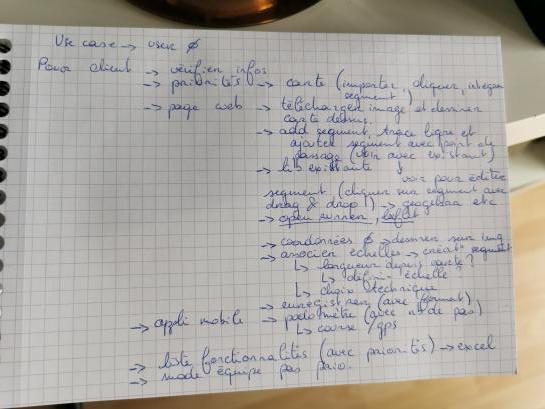 Use case → user ∅
Pour client → vérifier infos
→ priorités → carte (importer, cliquer, intégrer segment)
→ page web → télécharger image et dessiner
carte dessus.
→ add segment, trace ligne et
ajouter segment avec point de
passage (voir avec existant)
→ lib existante ↓ voir pour éditer
segment (cliquer sur segment avec
drag & drop !) → geogebra etc
→ open runner, leaflet
→ coordonnées ∅ → dessiner sur img
→ associer échelles → créat° segment
↳ longueur depuis carte ?
↳ définir échelle ?
↳ choix technique
→ enregistrer (avec format)
→ appli mobile → podomètre (avec nb de pas)
↳ course / gps
→ liste fonctionnalités (avec priorités) → excel
→ mode équipe pas prio.